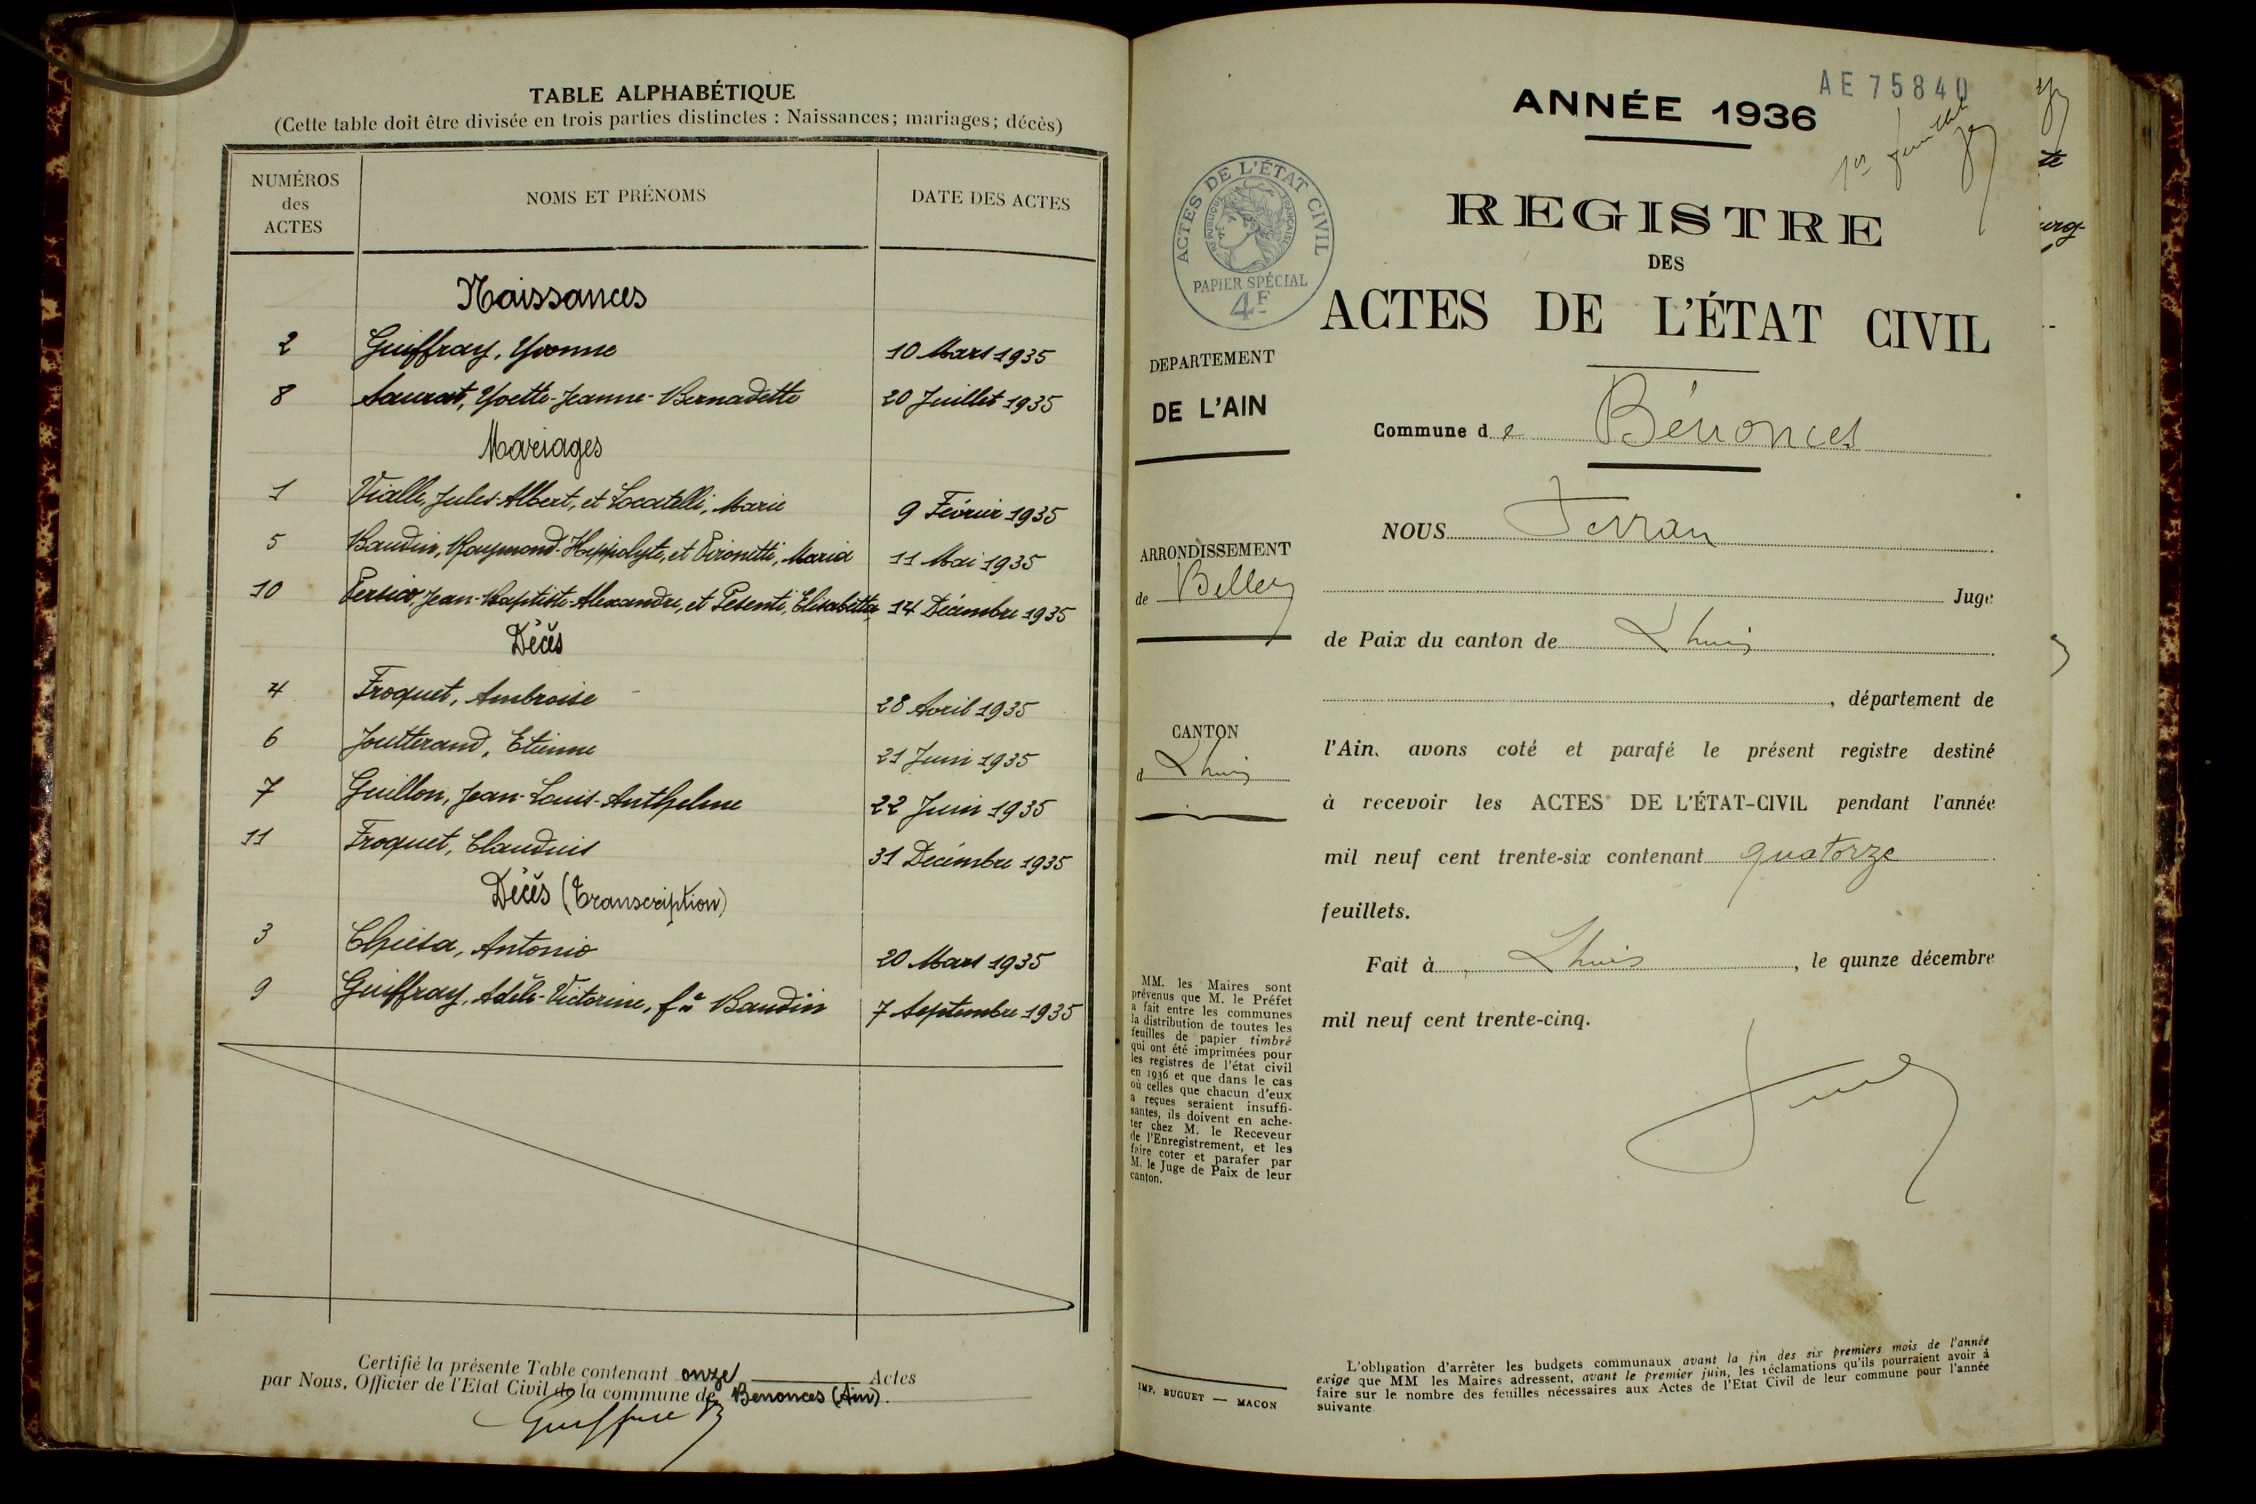 TABLE ALPHABÉTIQUE
(Cette table doit être divisée en trois parties distinctes : Naissances; mariages; décès)
NUMÉROS des ACTES
NOMS ET PRÉNOMS
DATE DES ACTES
Naissances
2 Guiffray, Yvonne 10 Mars 1935
8 Saurat, Yvette-Jeanne-Bernadette 20 Juillet 1935
Mariages
1 Vialle, Jules-Albert, et Locatelli, Marie 9 Février 1935
5 Baudin, Raymond-Hippolyte, et Pironetti, Maria 11 Mai 1935
10 Persico, Jean-Baptiste-Alexandre, et Pesenti, Elisabetta 14 Décembre 1935
Décès
4 Froquet, Ambroise 28 Avril 1935
6 Joutterand, Etienne 21 Juin 1935
7 Guillon, Jean-Louis-Anthelme 22 Juin 1935
11 Froquet, Claudius 31 Décembre 1935
Décès (Transcription)
3 Chiesa, Antonio 20 Mars 1935
9 Guiffray, Adèle-Victorine, fe Baudin 7 Septembre 1935
Certifié la présente Table contenant onze Actes
par Nous, Officier de l'Etat Civil de la commune de Benonces (Ain).
AE 75840
ANNÉE 1936
1er feuillet
ACTES DE L'ÉTAT CIVIL
RÉPUBLIQUE FRANÇAISE
PAPIER SPÉCIAL
4F
REGISTRE
DES
ACTES DE L'ÉTAT CIVIL
DEPARTEMENT
DE L'AIN
Commune de Bénonces
NOUS Ferran
ARRONDISSEMENT
de Belley
Juge
de Paix du canton de Lhuis
, département de
CANTON
d Lhuis
l'Ain, avons coté et parafé le présent registre destiné
à recevoir les ACTES DE L'ÉTAT-CIVIL pendant l'année
mil neuf cent trente-six contenant quatorze
feuillets.
Fait à Lhuis, le quinze décembre
mil neuf cent trente-cinq.
MM. les Maires sont
prévenus que M. le Préfet
a fait entre les communes
la distribution de toutes les
feuilles de papier timbré
qui ont été imprimées pour
les registres de l'état civil
en 1936 et que dans le cas
où celles que chacun d'eux
a reçues seraient insuffi-
santes, ils doivent en ache-
ter chez M. le Receveur
de l'Enregistrement, et les
faire coter et parafer par
M. le Juge de Paix de leur
canton.
IMP. BUGUET — MACON
L'obligation d'arrêter les budgets communaux avant la fin des six premiers mois de l'année
exige que MM les Maires adressent, avant le premier juin, les réclamations qu'ils pourraient avoir à
faire sur le nombre des feuilles nécessaires aux Actes de l'Etat Civil de leur commune pour l'année
suivante